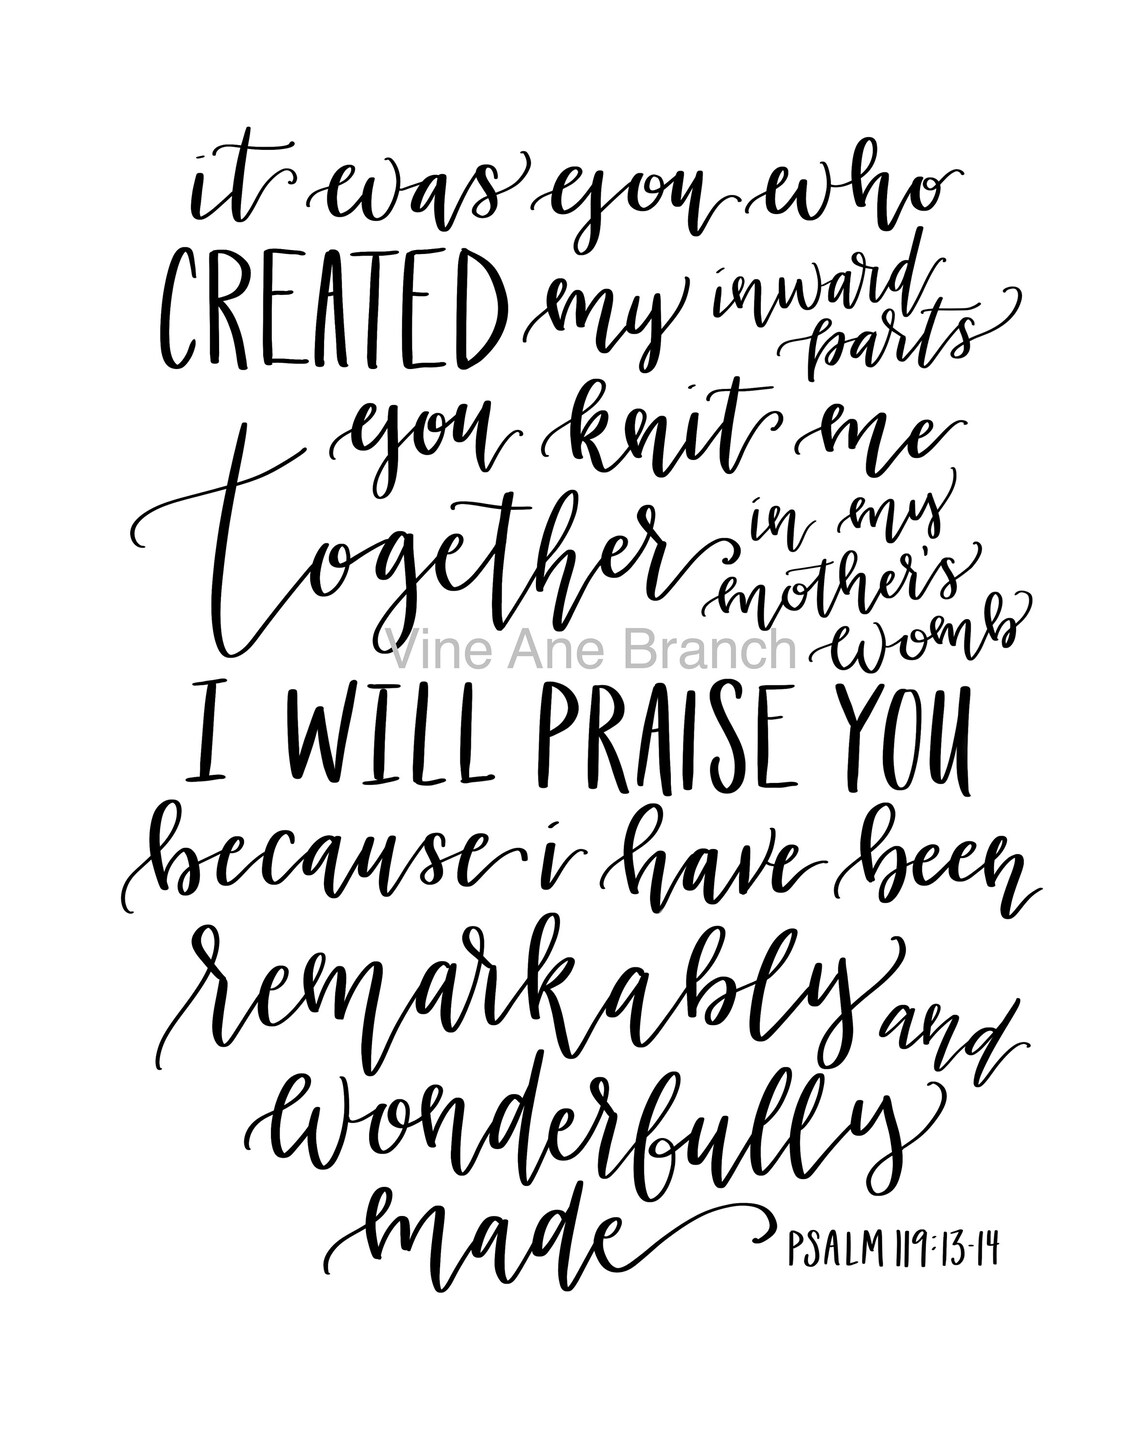 it was you who
CREATED my inward
parts
you knit me
together in my
mother's
womb
Vine Ane Branch
I WILL PRAISE YOU
because i have been
remarkably and
wonderfully
made
PSALM 119:13-14